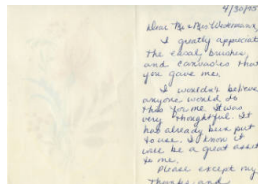 4/30/05
Dear Mr & Mrs
I greatly appreciate
the easel, brushes,
and canvases that
you gave me.
I wouldn't believe
anyone would do
this for me. It was
very thoughtful. It
has already been put
to use. I know it
will be a great asset
to me.
Please except my
thanks and